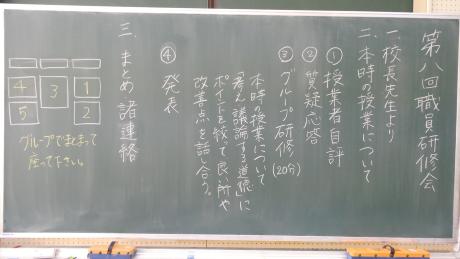 第八回職員研修会
一、校長先生より
二、本時の授業について
①授業者自評
②質疑応答
③グループ研修(20分)
本時の授業について
「考え議論する道徳」に
ポイントを絞って良い所や
改善点を話し合う。
④発表
三、まとめ 諸連絡
4 3 1
5 2
グループでまとまって
座って下さい。